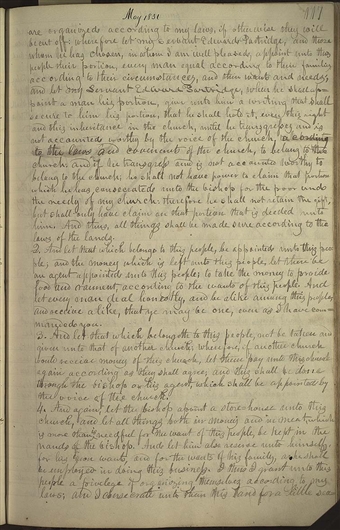 May 1831
are organized according to my laws, if otherwise they will
be cut off; wherefore let my Servant Edward Partridge, and those
whom he has chosen, in whom I am well pleased, appoint unto this
people their portion, every man equal according to their families,
according to their circumstances, and their wants and needs;
and let my Servant Edward Partridge, when he shall ap-
point a man his portion, give unto him a writing that shall
secure to him his portion, that he shall hold it, even this right
and this inheritance in the church, until he transgresses and is
not accounted worthy by the voice of the church, according
to the laws and covenants of the church, to belong to the
church; and if he transgress and is not accounted worthy to
belong to the church, he shall not have power to claim that portion
which he has consecrated unto the bishop for the poor and
the needy of my church; therefore he shall not retain the gift,
but shall only have claim on that portion that is deeded unto
him. And thus, all things shall be made sure according to the
laws of the land.
2. And let that which belongs to this people, be appointed unto this peo-
ple; and the money which is left unto this people, let there be
an agent appointed unto this people, to take the money to provide
food and raiment according to the wants of this people. And
let every man deal honestly, and be alike among this people,
and receive alike, that ye may be one, even as I have com-
manded you.
3. And let that which belongeth to this people, not be taken and
given unto that of another church; wherefore, if another church
would receive money of this church, let them pay unto this church
again according as they shall agree; and this shall be done
through the bishop or the agent, which shall be appointed by
the voice of the church.
4. And again, let the bishop appoint a storehouse unto this
church, and let all things both in money and in meat which
is more than needful for the want of this people, be kept in the
hands of the bishop. And let him also reserve unto himself,
for his own wants, and for the wants of his family, as he shall
be employed in doing this business. & thus I grant unto this
people a privilege of organizing themselves according to my
laws; and I consecrate unto them this land for a little sea-